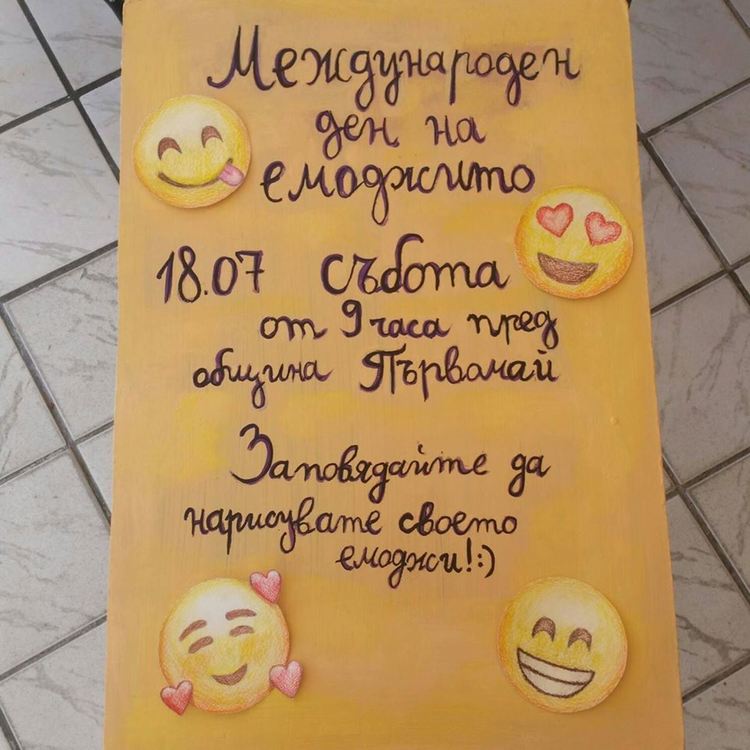 Международен
ден на
емоджито
18.07 събота
от 9 часа пред
община Първомай
Заповядайте да
нарисувате своето
емоджи!:)